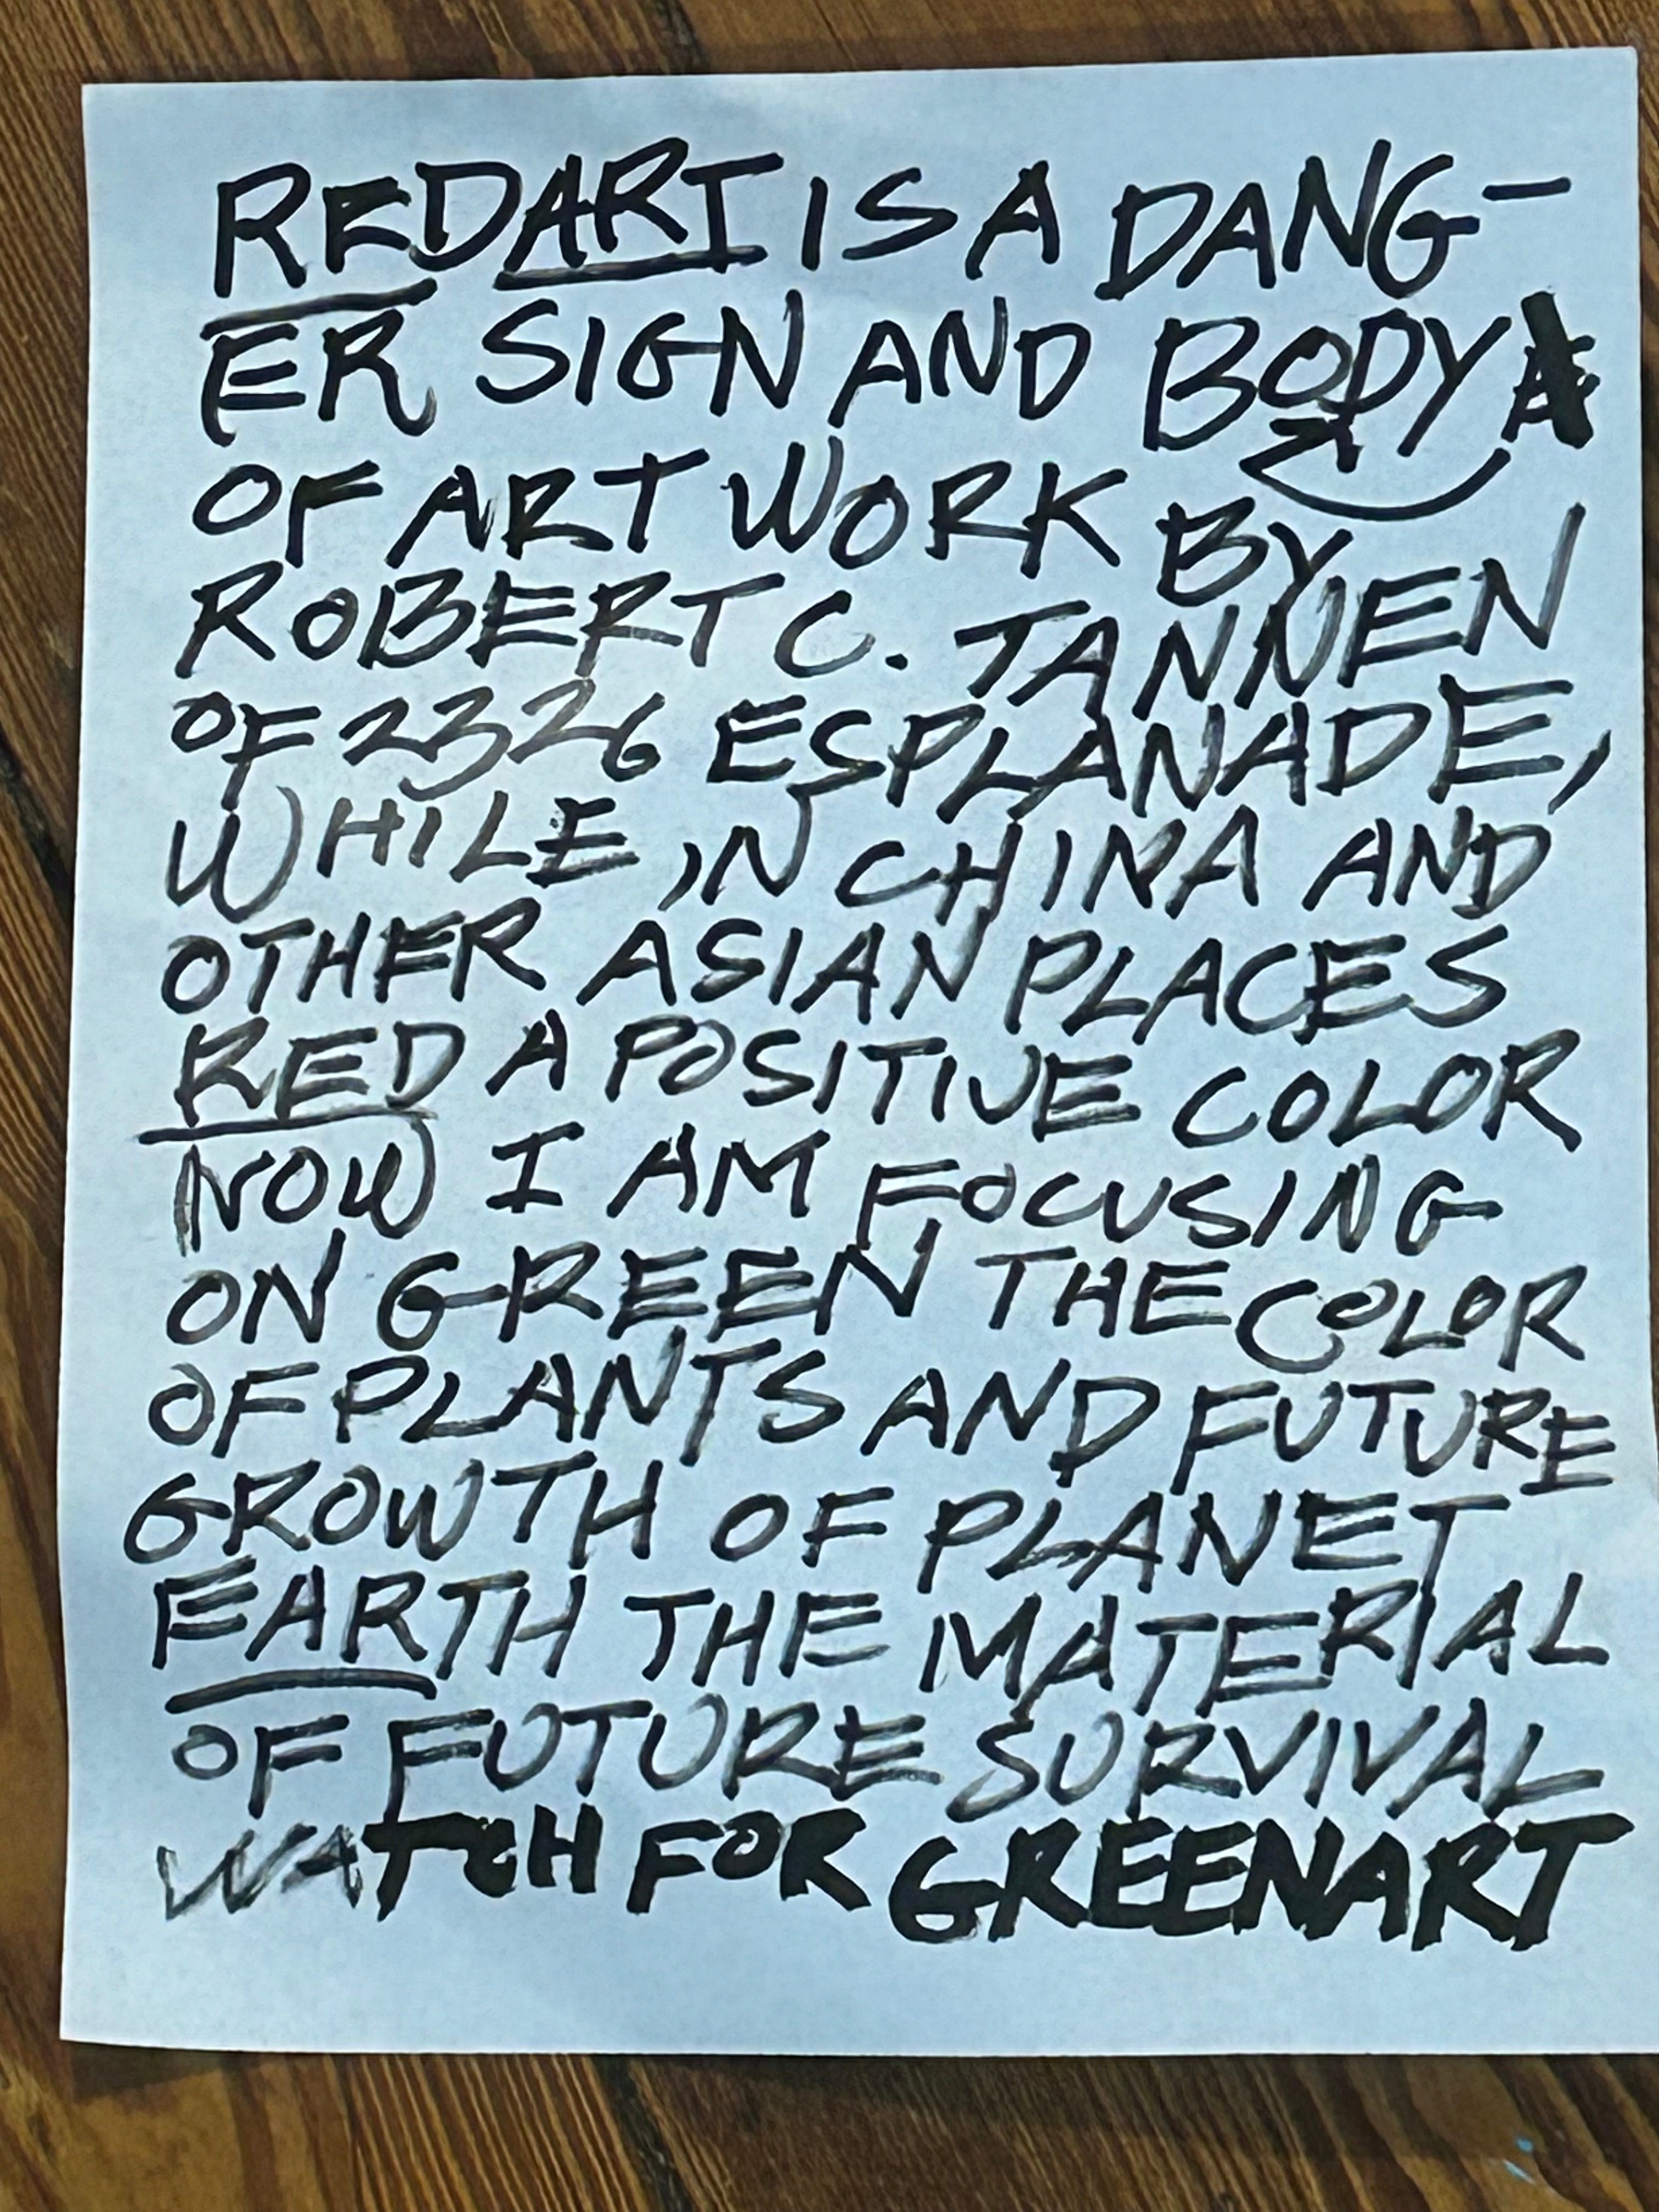 REDART IS A DANG-
ER SIGN AND BODY A
OF ART WORK BY
ROBERT C. TANNEN
OF 2326 ESPLANADE,
WHILE IN CHINA AND
OTHER ASIAN PLACES
RED A POSITIVE COLOR
NOW I AM FOCUSING
ON GREEN THE COLOR
OF PLANTS AND FUTURE
GROWTH OF PLANET
EARTH THE MATERIAL
OF FUTURE SURVIVAL
WATCH FOR GREENART